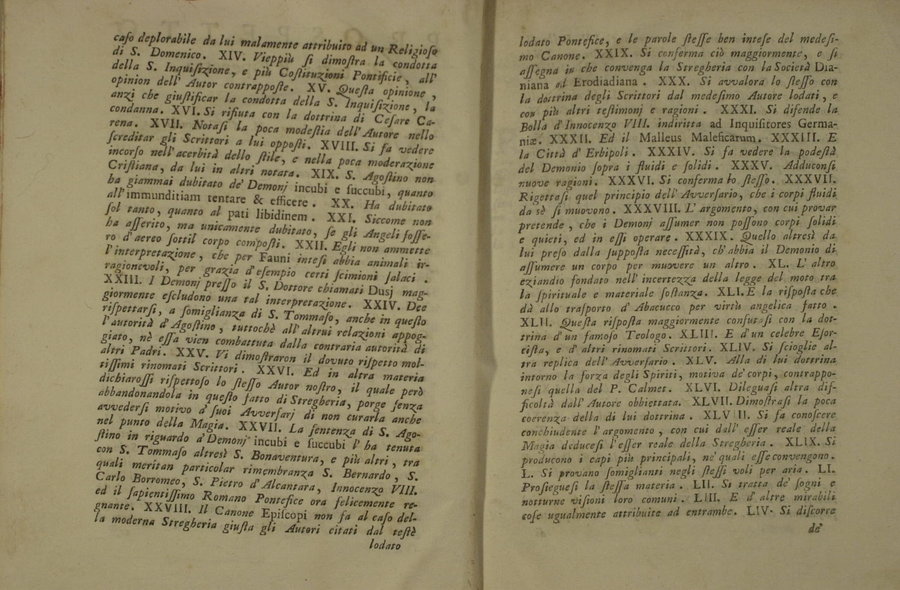 caso deplorabile da lui malamente attribuito ad un Religioso
di S. Domenico. XIV. Vieppiù si dimostra la condotta
della S. Inquisizione, e più Costituzioni Pontificie, all'
opinion dell' Autor contrapposte. XV. Questa opinione,
anzi che giustificar la condotta della S. Inquisizione, la
condanna. XVI. Si rifiuta con la dottrina di Cesare Ca-
rena. XVII. Notasi la poca modestia dell' Autore nello
screditar gli Scrittori a lui opposti. XVIII. Si fa vedere
incorso nell' acerbità dello stile, e nella poca moderazione
Cristiana, da lui in altri notata. XIX. S. Agostino non
ha giammai dubitato de' Demonj incubi e succubi, quanto
all' immunditiam tentare & efficere. XX. Ha dubitato
sol tanto, quanto al pati libidinem. XXI. Siccome non
ha asserito, ma unicamente dubitato, se gli Angeli fosse-
ro d' aereo sottil corpo composti. XXII. Egli non ammette
l' interpretazione, che per Fauni intesi abbia animali ir-
ragionevoli, per grazia d' esempio certi scimioni salaci.
XXIII. I Demonj presso il S. Dottore chiamati Dusj mag-
giormente escludono una tal interpretazione. XXIV. Dee
rispettarsi, a somiglianza di S. Tommaso, anche in questo
l' autorità d' Agostino, tuttochè all' altrui relazioni appog-
giato, nè essa vien combattuta dalla contraria autorità di
altri Padri. XXV. Vi dimostraron il dovuto rispetto mol-
tissimi rinomati Scrittori. XXVI. Ed in altra materia
dichiarossi rispettoso lo stesso Autor nostro, il quale però
abbandonandola in questo fatto di Stregheria, porge senza
avvedersi motivo a' suoi Avversarj di non curarla anche
nel punto della Magia. XXVII. La sentenza di S. Ago-
stino in riguardo a' Demonj incubi e succubi l' ha tenuta
con S. Tommaso altresì S. Bonaventura, e più altri, tra
quali meritan particolar rimembranza S. Bernardo, S.
Carlo Borromeo, S. Pietro d' Alcantara, Innocenzo VIII.
ed il sapientissimo Romano Pontefice ora felicemente re-
gnante. XXVIII. Il Canone Episcopi non fa al caso del-
la moderna Stregheria giusta gli Autori citati dal testè
lodato
lodato Pontefice, e le parole stesse ben intese del medesi-
mo Canone. XXIX. Si conferma ciò maggiormente, e si
assegna in che convenga la Stregheria con la Società Dia-
niana ed Erodiadiana. XXX. Si avvalora lo stesso con
la dottrina degli Scrittori dal medesimo Autore lodati, e
con più altri testimonj e ragioni. XXXI. Si difende la
Bolla d' Innocenzo VIII. indiritta ad Inquisitores Germa-
niæ. XXXII. Ed il Malleus Maleficarum. XXXIII. E
la Città d' Erbipoli. XXXIV. Si fa vedere la podestà
del Demonio sopra i fluidi e solidi. XXXV. Adduconsi
nuove ragioni. XXXVI. Si conferma lo stesso. XXXVII.
Rigettasi quel principio dell' Avversario, che i corpi fluidi
da sè si muovono. XXXVIII. L' argomento, con cui provar
pretende, che i Demonj assumer non possono corpi solidi
e quieti, ed in essi operare. XXXIX. Quello altresì da
lui preso dalla supposta necessità, ch' abbia il Demonio di
assumere un corpo per muovere un altro. XL. L' altro
eziandio fondato nell' incertezza della legge del moto tra
la spirituale e materiale sostanza. XLI. E la risposta che
dà allo trasporto d' Abacucco per virtù angelica fatto.
XLII. Questa risposta maggiormente confutasi con la dot-
trina d' un famoso Teologo. XLIII. E d' un celebre Esor-
cista, e d' altri rinomati Scrittori. XLIV. Si scioglie al-
tra replica dell' Avversario. XLV. Alla di lui dottrina
intorno la forza degli Spiriti, motiva de' corpi, contrappo-
nesi quella del P. Calmet. XLVI. Dileguasi altra dif-
ficoltà dall' Autore obbiettata. XLVII. Dimostrasi la poca
coerenza della di lui dottrina. XLVIII. Si fa conoscere
conchiudente l' argomento, con cui dall' esser reale della
Magia deducesi l' esser reale della Stregheria. XLIX. Si
producono i capi più principali, ne' quali esse convengono.
L. Si provano somiglianti negli stessi voli per aria. LI.
Prosieguesi la stessa materia. LII. Si tratta de' sogni e
notturne visioni loro comuni. LIII. E d' altre mirabili
cose ugualmente attribuite ad entrambe. LIV. Si discorre
de'